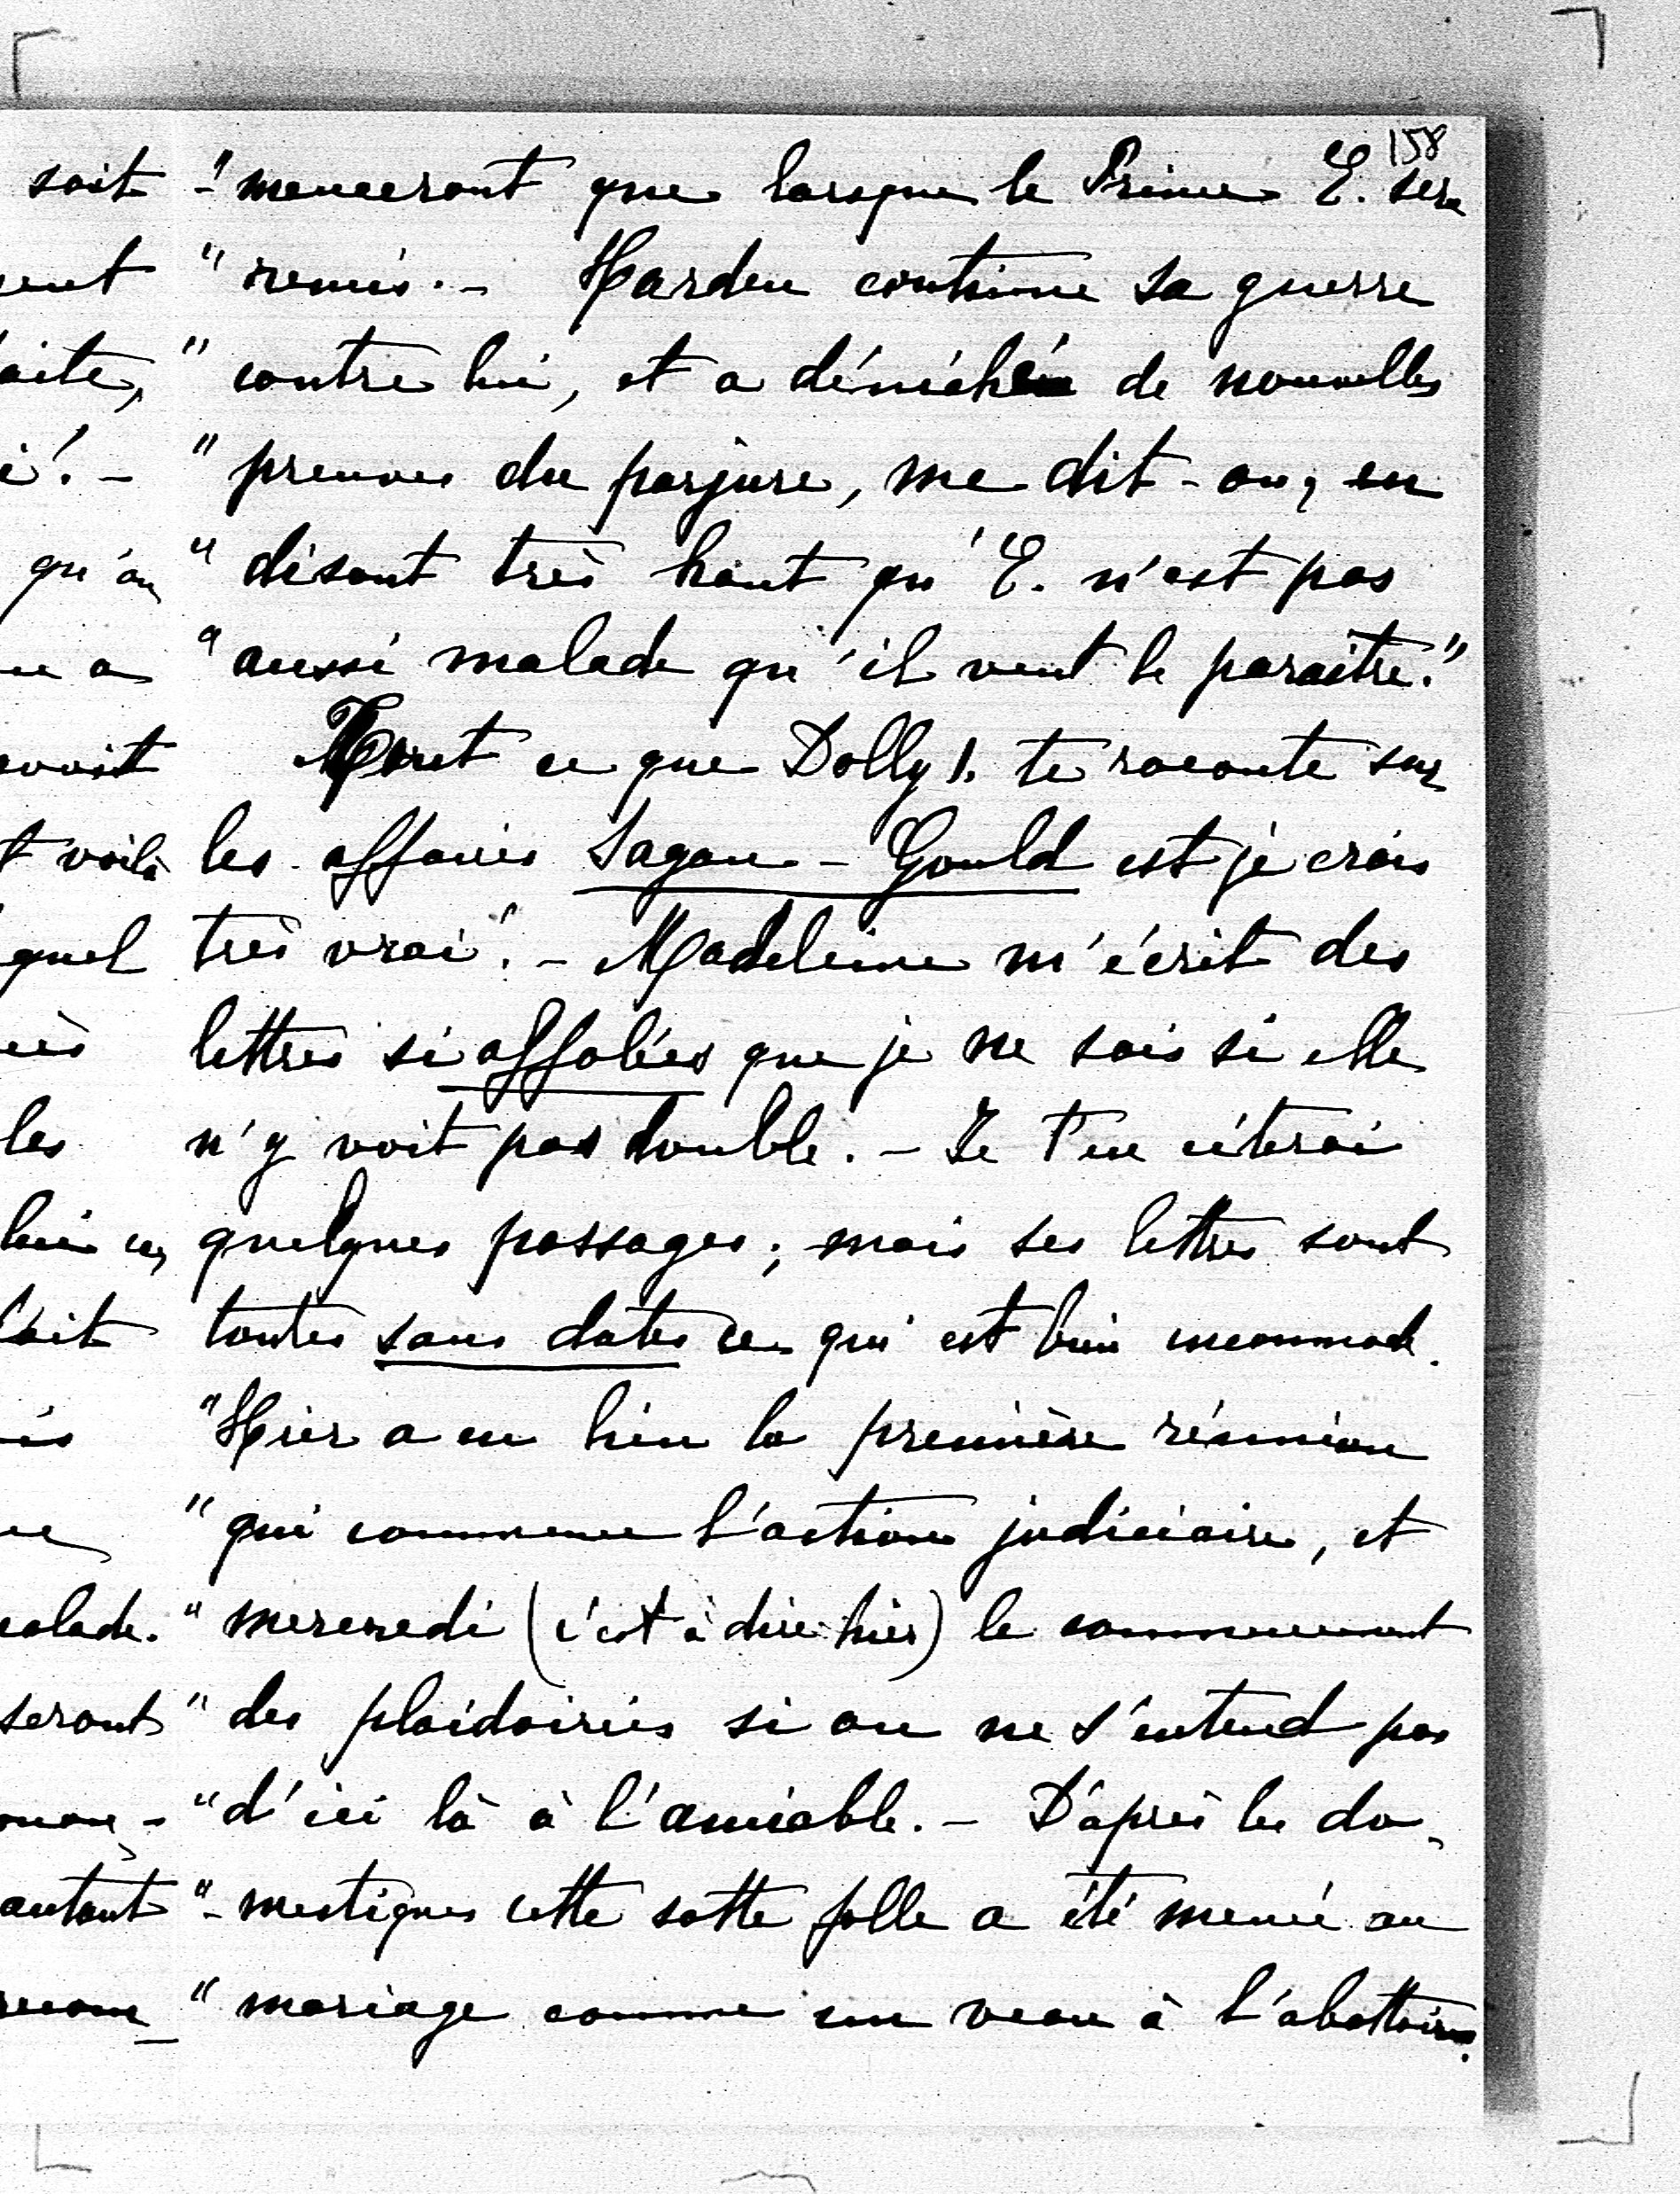 158
soit "-menceront que lorsque le Prince E. sera
"remis. - Harden continue sa guerre
"contre lui, et a déniché de nouvelles
"preuves du parjure, me dit-on, en
qu'on "disant très haut qu'E. n'est pas
"aussi malade qu'il veut le paraître."
Tout ce que Dolly 1. te raconte sur
voilà les affaires Sagan - Gould est je crois
quel très vrai! - Madeleine m'écrit des
lettres si affolées que je ne sais si elle
les n'y voit pas double. - Je t'en citerai
quelques passages; mais ses lettres sont
toutes sans dates ce qui est bien incommode.
"Hier a eu lieu la première réunion
"qui commence l'action judiciaire, et
"mercredi (c'est à dire hier) le commencement
seront "des plaidoiries si on ne s'entend pas
"d'ici là à l'amiable. - D'après les do-
autant "-mestiques cette sotte folle a été menée au
"mariage comme un veau à l'abattoir.